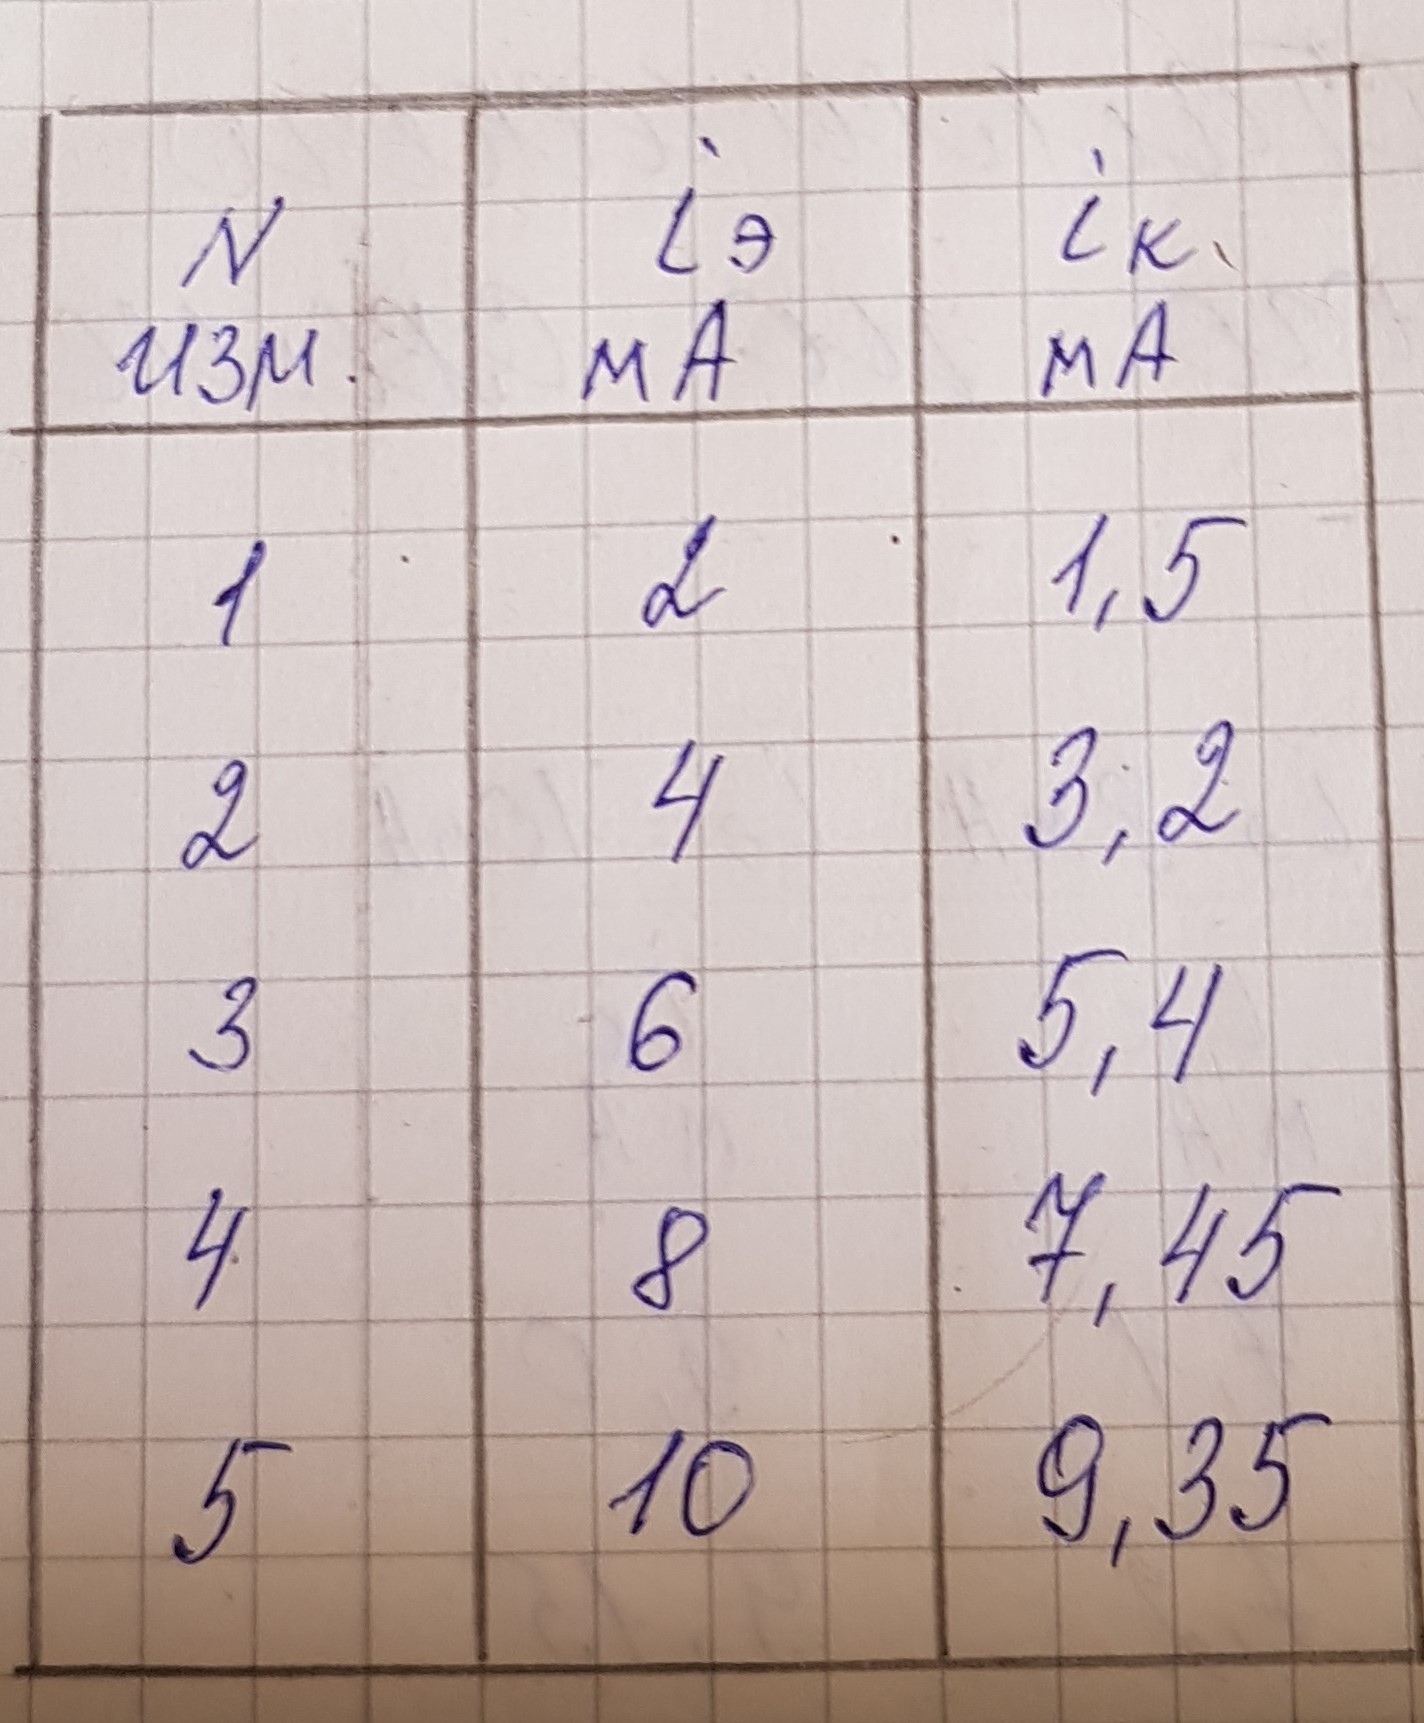 N изм. iэ мА iк, мА
1 2 1,5
2 4 3,2
3 6 5,4
4 8 7,45
5 10 9,35